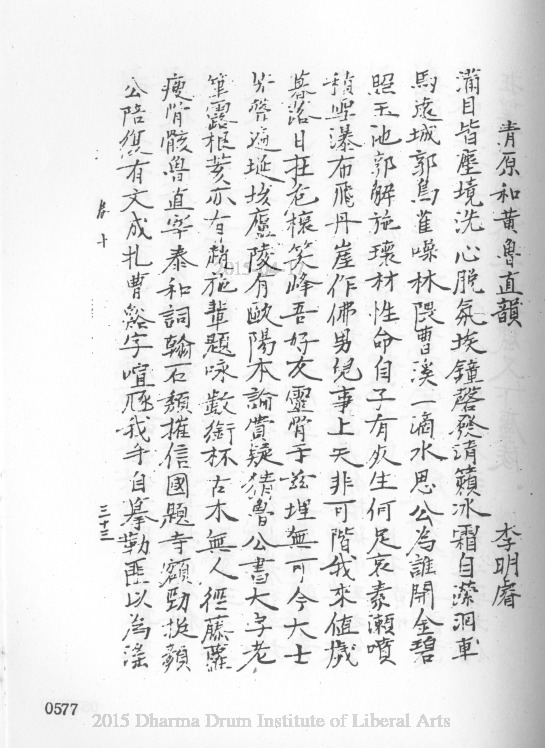 青原和黃魯直韻
李明睿
滿目皆塵境洗心脫氛埃鐘磬發清籟冰霜自瀠洄車
馬遠城郭鳥雀噪林隈曹溪一滴水思公為誰開金碧
照玉池郭解施壞材性命自子有友生何足哀素瀨噴
積雪瀑布飛丹崖作佛男兒事上天非可階我來值歲
暮落日狂危榱笑峰吾好友靈骨于茲埋無可今大士
遍埏垓廬陵有歐陽本論費疑猜魯公書大字老
筆露柩荄亦有趙施輩題咏數銜杯古木無人徑藤蘿
瘦骨骸魯直宰泰和詞翰石顏摧信國題寺額勁挺顏
公陪復有文成札曹谿字喧豗我手自摹勒匪以為滛
卷十
三十三
0577
2015 Dharma Drum Institute of Liberal Arts